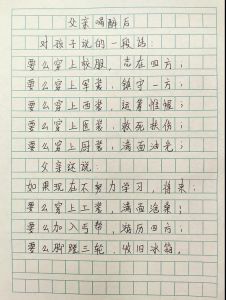 父亲喝醉后
对孩子说的一段话：
要么穿上校服，志在四方；
要么穿上军装，镇守一方；
要么穿上西装，运筹帷幄；
要么穿上医装，救死扶伤；
要么穿上厨装，满面油光；
父亲还说：
如果现在不努力学习，将来：
要么穿上工装，满面沧桑；
要么加入丐帮，游历四方；
要么脚蹬三轮，收旧冰箱。